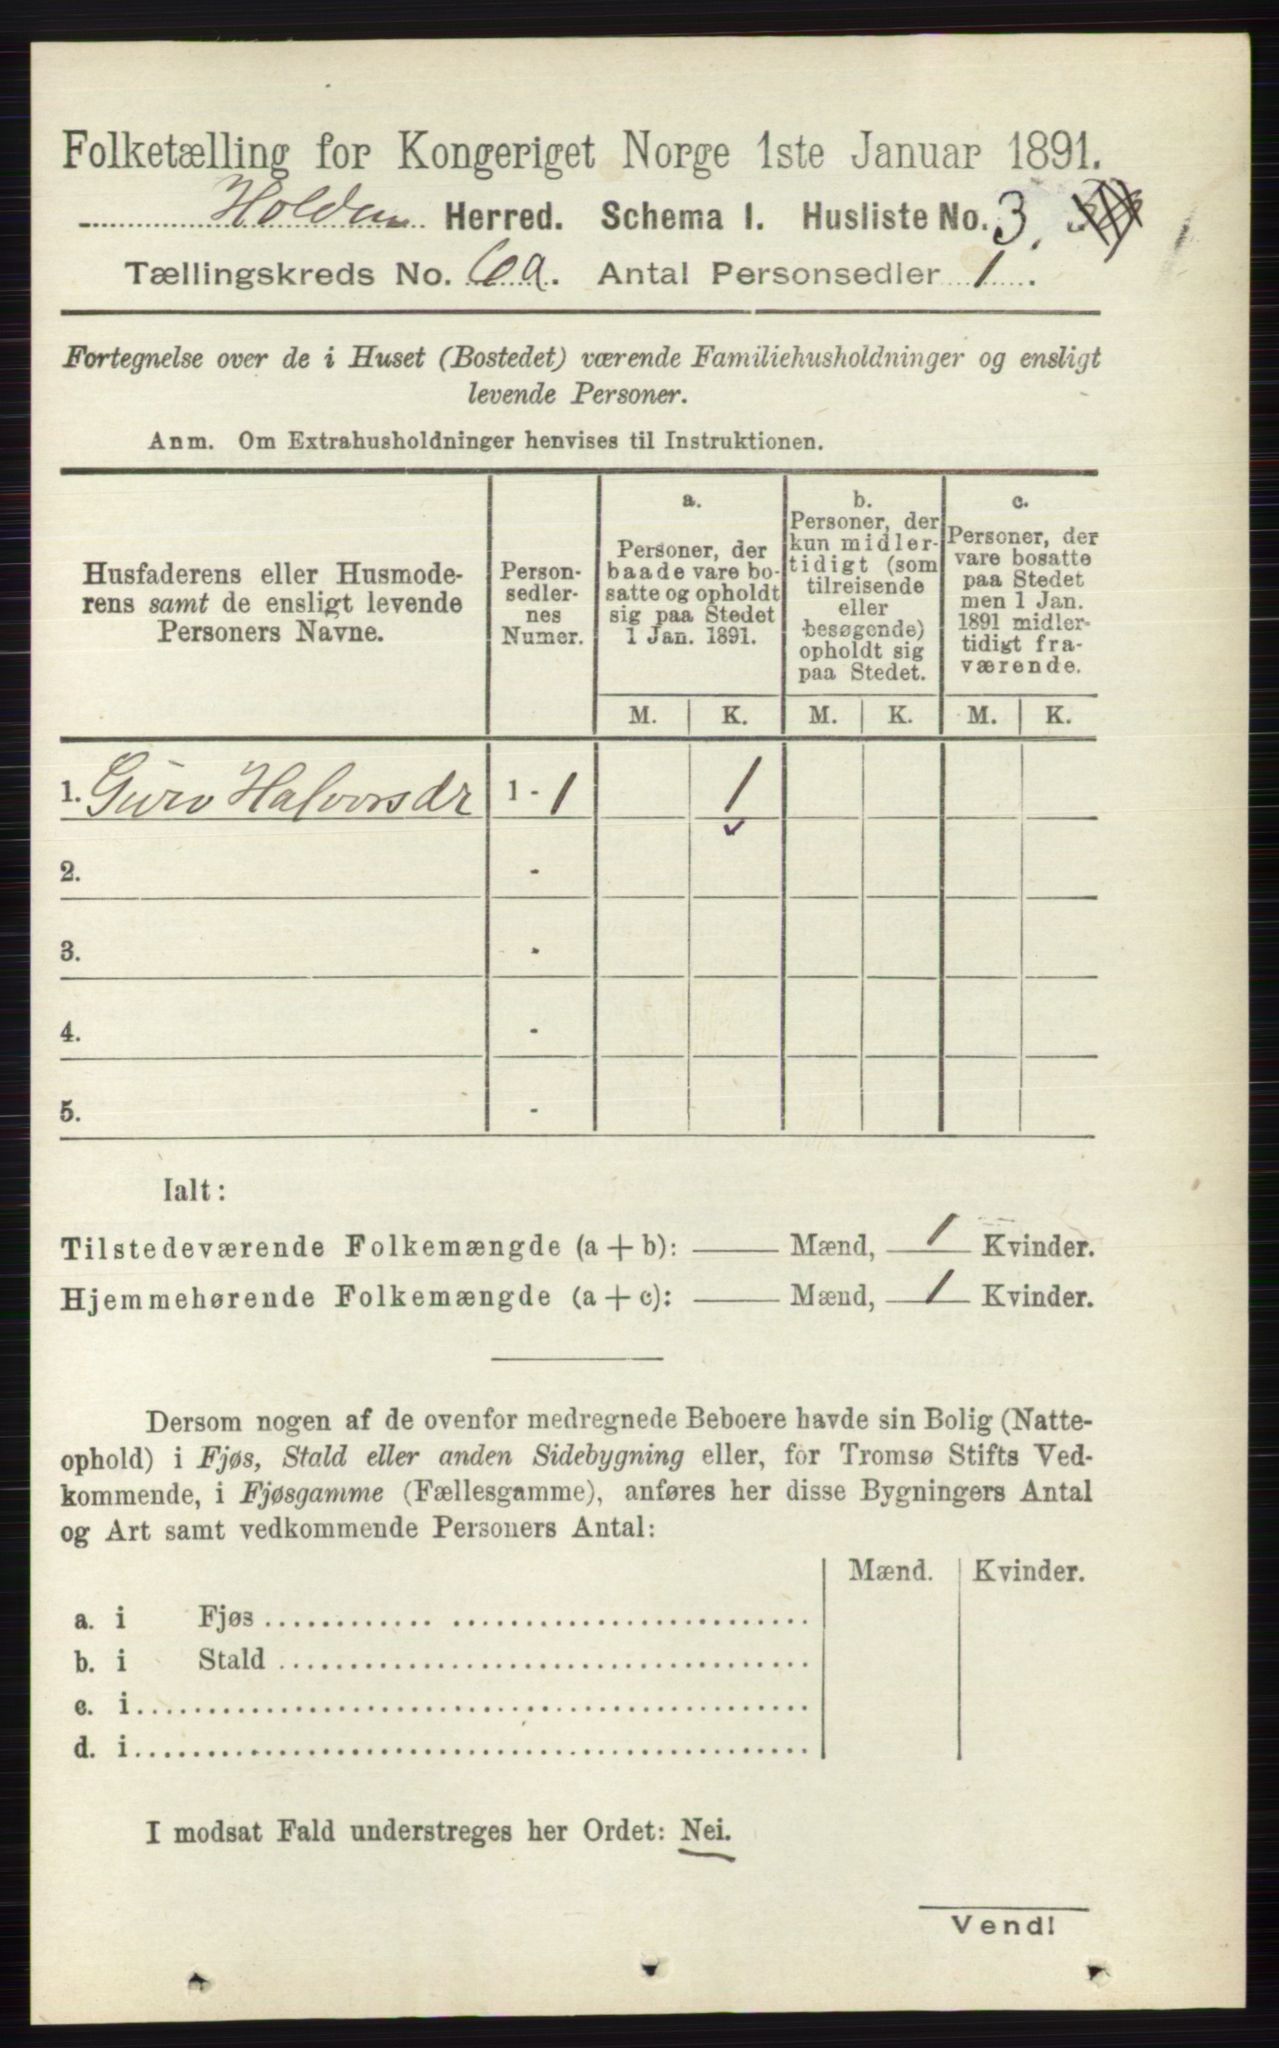 Folketælling for Kongeriget Norge 1ste Januar 1891.
Holden Herred. Schema I. Husliste No. 3.
Tællingskreds No. 6a. Antal Personsedler 1.
Fortegnelse over de i Huset (Bostedet) værende Familiehusholdninger og ensligt
levende Personer.
Anm. Om Extrahusholdninger henvises til Instruktionen.
Husfaderens eller Husmode-
rens samt de ensligt levende
Personers Navne.
Person-
sedler-
nes
Numer.
a.
Personer, der
baade vare bo-
satte og opholdt
sig paa Stedet
1 Jan. 1891.
b.
Personer, der
kun midler-
tidigt (som
tilreisende
eller
besøgende)
opholdt sig
paa Stedet.
c.
Personer, der
vare bosatte
paa Stedet
men 1 Jan.
1891 midler-
tidigt fra-
værende.
M. K. M. K. M. K.
1. Guro Halvorsdr 1 - 1 1
2. -
3. -
4. -
5. -
Ialt:
Tilstedeværende Folkemængde (a + b): — Mænd, 1 Kvinder.
Hjemmehørende Folkemængde (a + c): — Mænd, 1 Kvinder.
Dersom nogen af de ovenfor medregnede Beboere havde sin Bolig (Natte-
ophold) i Fjøs, Stald eller anden Sidebygning eller, for Tromsø Stifts Ved-
kommende, i Fjøsgamme (Fællesgamme), anføres her disse Bygningers Antal
og Art samt vedkommende Personers Antal:
Mænd. Kvinder.
a. i Fjøs
b. i Stald
c. i
d. i
I modsat Fald understreges her Ordet: Nei.
Vend!